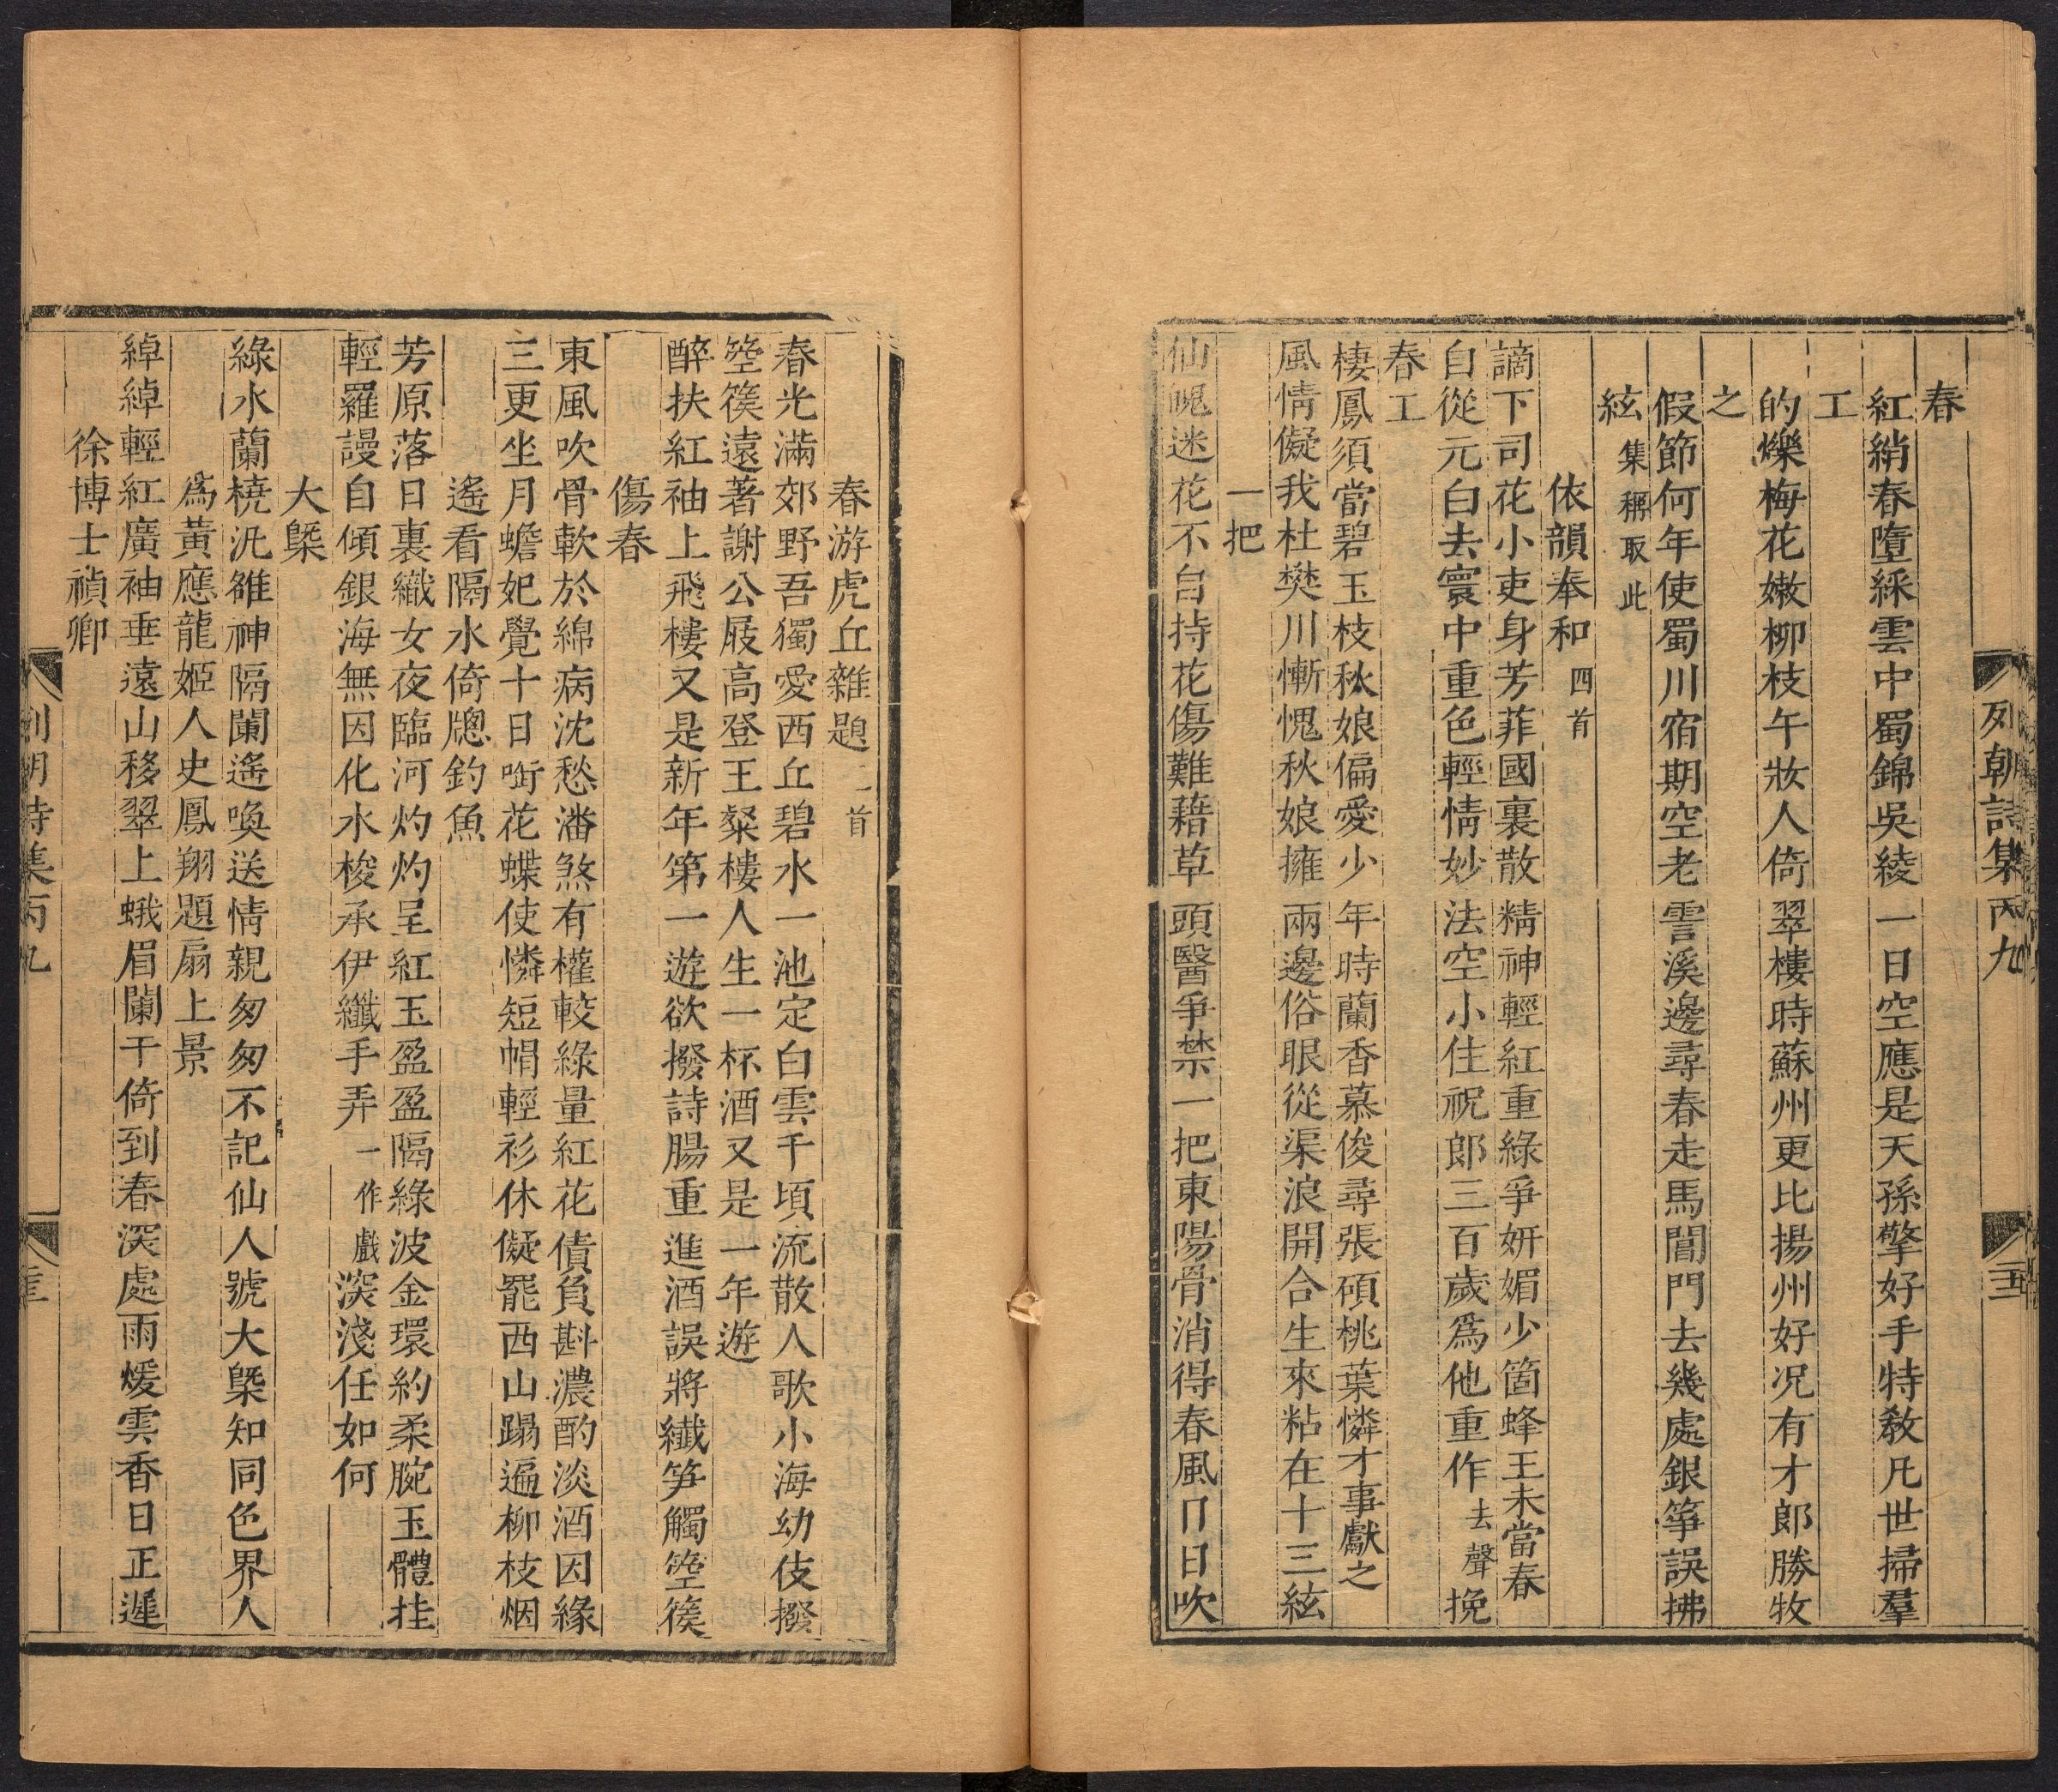 列朝詩集丙九
春
紅綃春墮綵雲中蜀錦吳綾一日空應是天孫擎好手特敎凡世掃羣
工
的爍梅花嫩柳枝午妝人倚翠樓時蘇州更比揚州好况有才郎勝牧
之
假節何年使蜀川宿期空老霅溪邊尋春走馬閶門去幾處銀箏誤拂
絃集稱取此
依韻奉和四首
謫下司花小吏身芳菲國裏散精神輕紅重綠爭妍媚少箇蜂王未當春
自從元白去寰中重色輕情妙法空小住祝郎三百歲爲他重作去聲挽
春工
棲鳳須當碧玉枝秋娘偏愛少年時蘭香慕俊尋張碩桃葉憐才事獻之
風情儗我杜樊川慚愧秋娘擁兩邊俗眼從渠浪開合生來粘在十三絃
一把
仙魄迷花不自持花傷難藉草頭醫爭禁一把東陽骨消得春風日吹
春游虎丘雜題二首
春光滿郊野吾獨愛西丘碧水一池定白雲千頃流散人歌小海幼伎撥
箜篌遠著謝公屐高登王粲樓人生一杯酒又是一年遊
醉扶紅袖上飛樓又是新年第一遊欲撥詩腸重進酒誤將纖笋觸箜篌
傷春
東風吹骨軟於綿病沈愁潘煞有權較綠量紅花債負斟濃酌淡酒因緣
三更坐月蟾妃覺十日銜花蝶使憐短帽輕衫休儗罷西山蹋遍柳枝烟
遙看隔水倚牕釣魚
芳原落日裏纖女夜臨河灼灼呈紅玉盈盈隔綠波金環約柔腕玉體挂
輕羅謾自傾銀海無因化水梭承伊纖手弄一作戲深淺任如何
大㮣
綠水蘭橈汎雒神隔闌遙喚送情親匆匆不記仙人號大㮣知同色界人
爲黃應龍姬人史鳳翔題扇上景
綽綽輕紅廣袖垂遠山移翠上蛾眉闌干倚到春深處雨煖雲香日正遲
徐博士禎卿
列朝詩集丙九